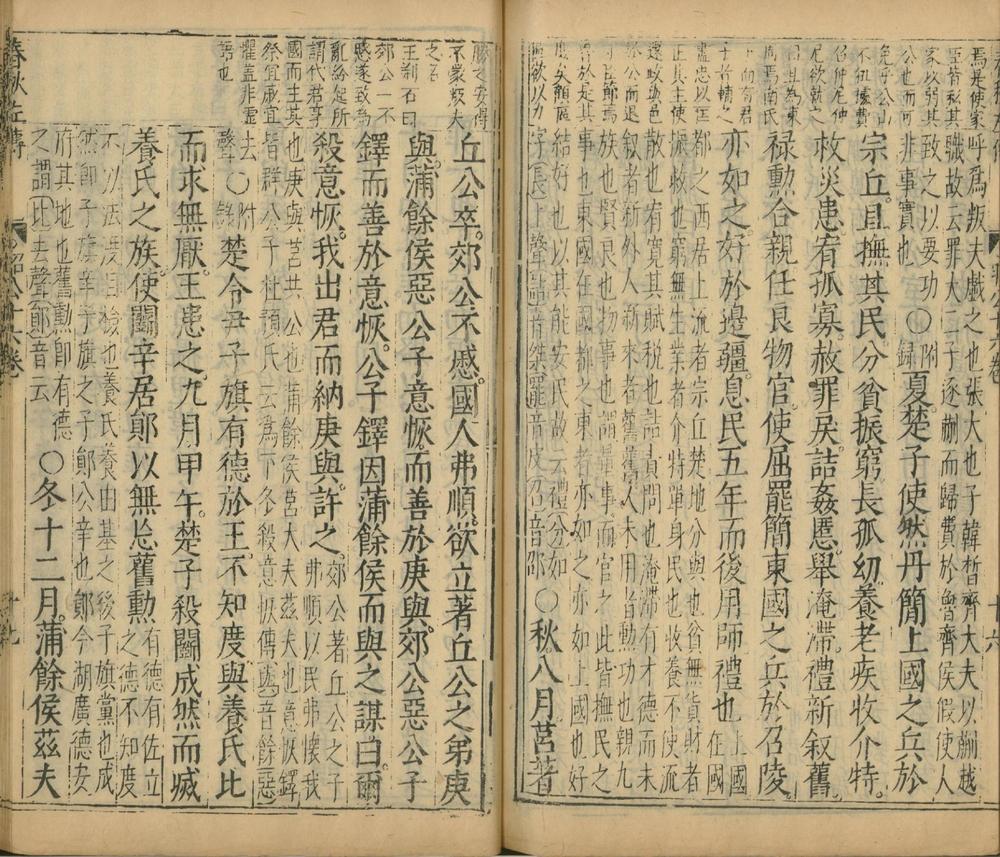 焉是使家
臣皆私其
家以弱其
公也而可
免乎公山
不狃據費
召仲尼仲
尼欲就之
呼爲叛夫戲之也張大也子韓晳齊大夫以蒯越
職故云罪大二子逐蒯而歸費於魯齊侯假使人
致之以要功
非事實也
○附錄夏楚子使然丹簡上國之兵於
宗丘且撫其民分貧振窮長孤幼養老疾收介特
救災患宥孤寡赦罪戾詰姦慝舉淹滯禮新叙舊
祿勳合親任良物官使屈罷簡東國之兵於召陵
亦如之好於邊疆息民五年而後用師禮也
上國
在國
都之西居上流者宗丘楚地分與也貧無貨財者
振救也窮無生業者介特單身民也收養不使流
散也宥寬其賦稅也詰責問也淹滯有才德而未
叙者新外人新來者舊舊人未用者勳功也親九
族也賢良也物事也謂量事而官之此皆撫民之
事也東國在國都之東者亦如之亦如上國也好
結好也以其能安民故云禮分如
字長上聲詰音桀罷音皮召音邵
○秋八月莒著
勝之安得
不蒙叛夫
之名
王荆石曰
郊公一不
慼遂致爲
亂紛起所
謂代君享
國而生其
祭宜戚宜
懼蓋非虛
語也
丘公卒郊公不慼國人弗順欲立著丘公之弟庚
與蒲餘侯惡公子意恢而善於庚與郊公惡公子
鐸而善於意恢公子鐸因蒲餘侯而與之謀曰爾
殺意恢我出君而納庚與許之
郊公著丘公之子
弗順以民弗懷我
也庚與莒共公也蒲餘侯莒大夫茲夫也意恢鐸
皆群公子杜預氏云爲下冬殺意恢傳與音餘惡
去聲
○附錄楚令尹子旗有德於王不知度與養氏比
而求無厭王患之九月甲午楚子殺鬭成然而滅
養氏之族使鬭辛居鄖以無忘舊勳
有德有佐立
之德不知度
不以法度自檢也養氏養由基之後子旗黨也成
然即子旗辛子旗之子鄖公辛也鄖今湖廣德安
府其地也舊勳即有德
之謂比去聲鄖音云
○冬十二月蒲餘侯茲夫
春秋左傳
昭公十六卷
十七